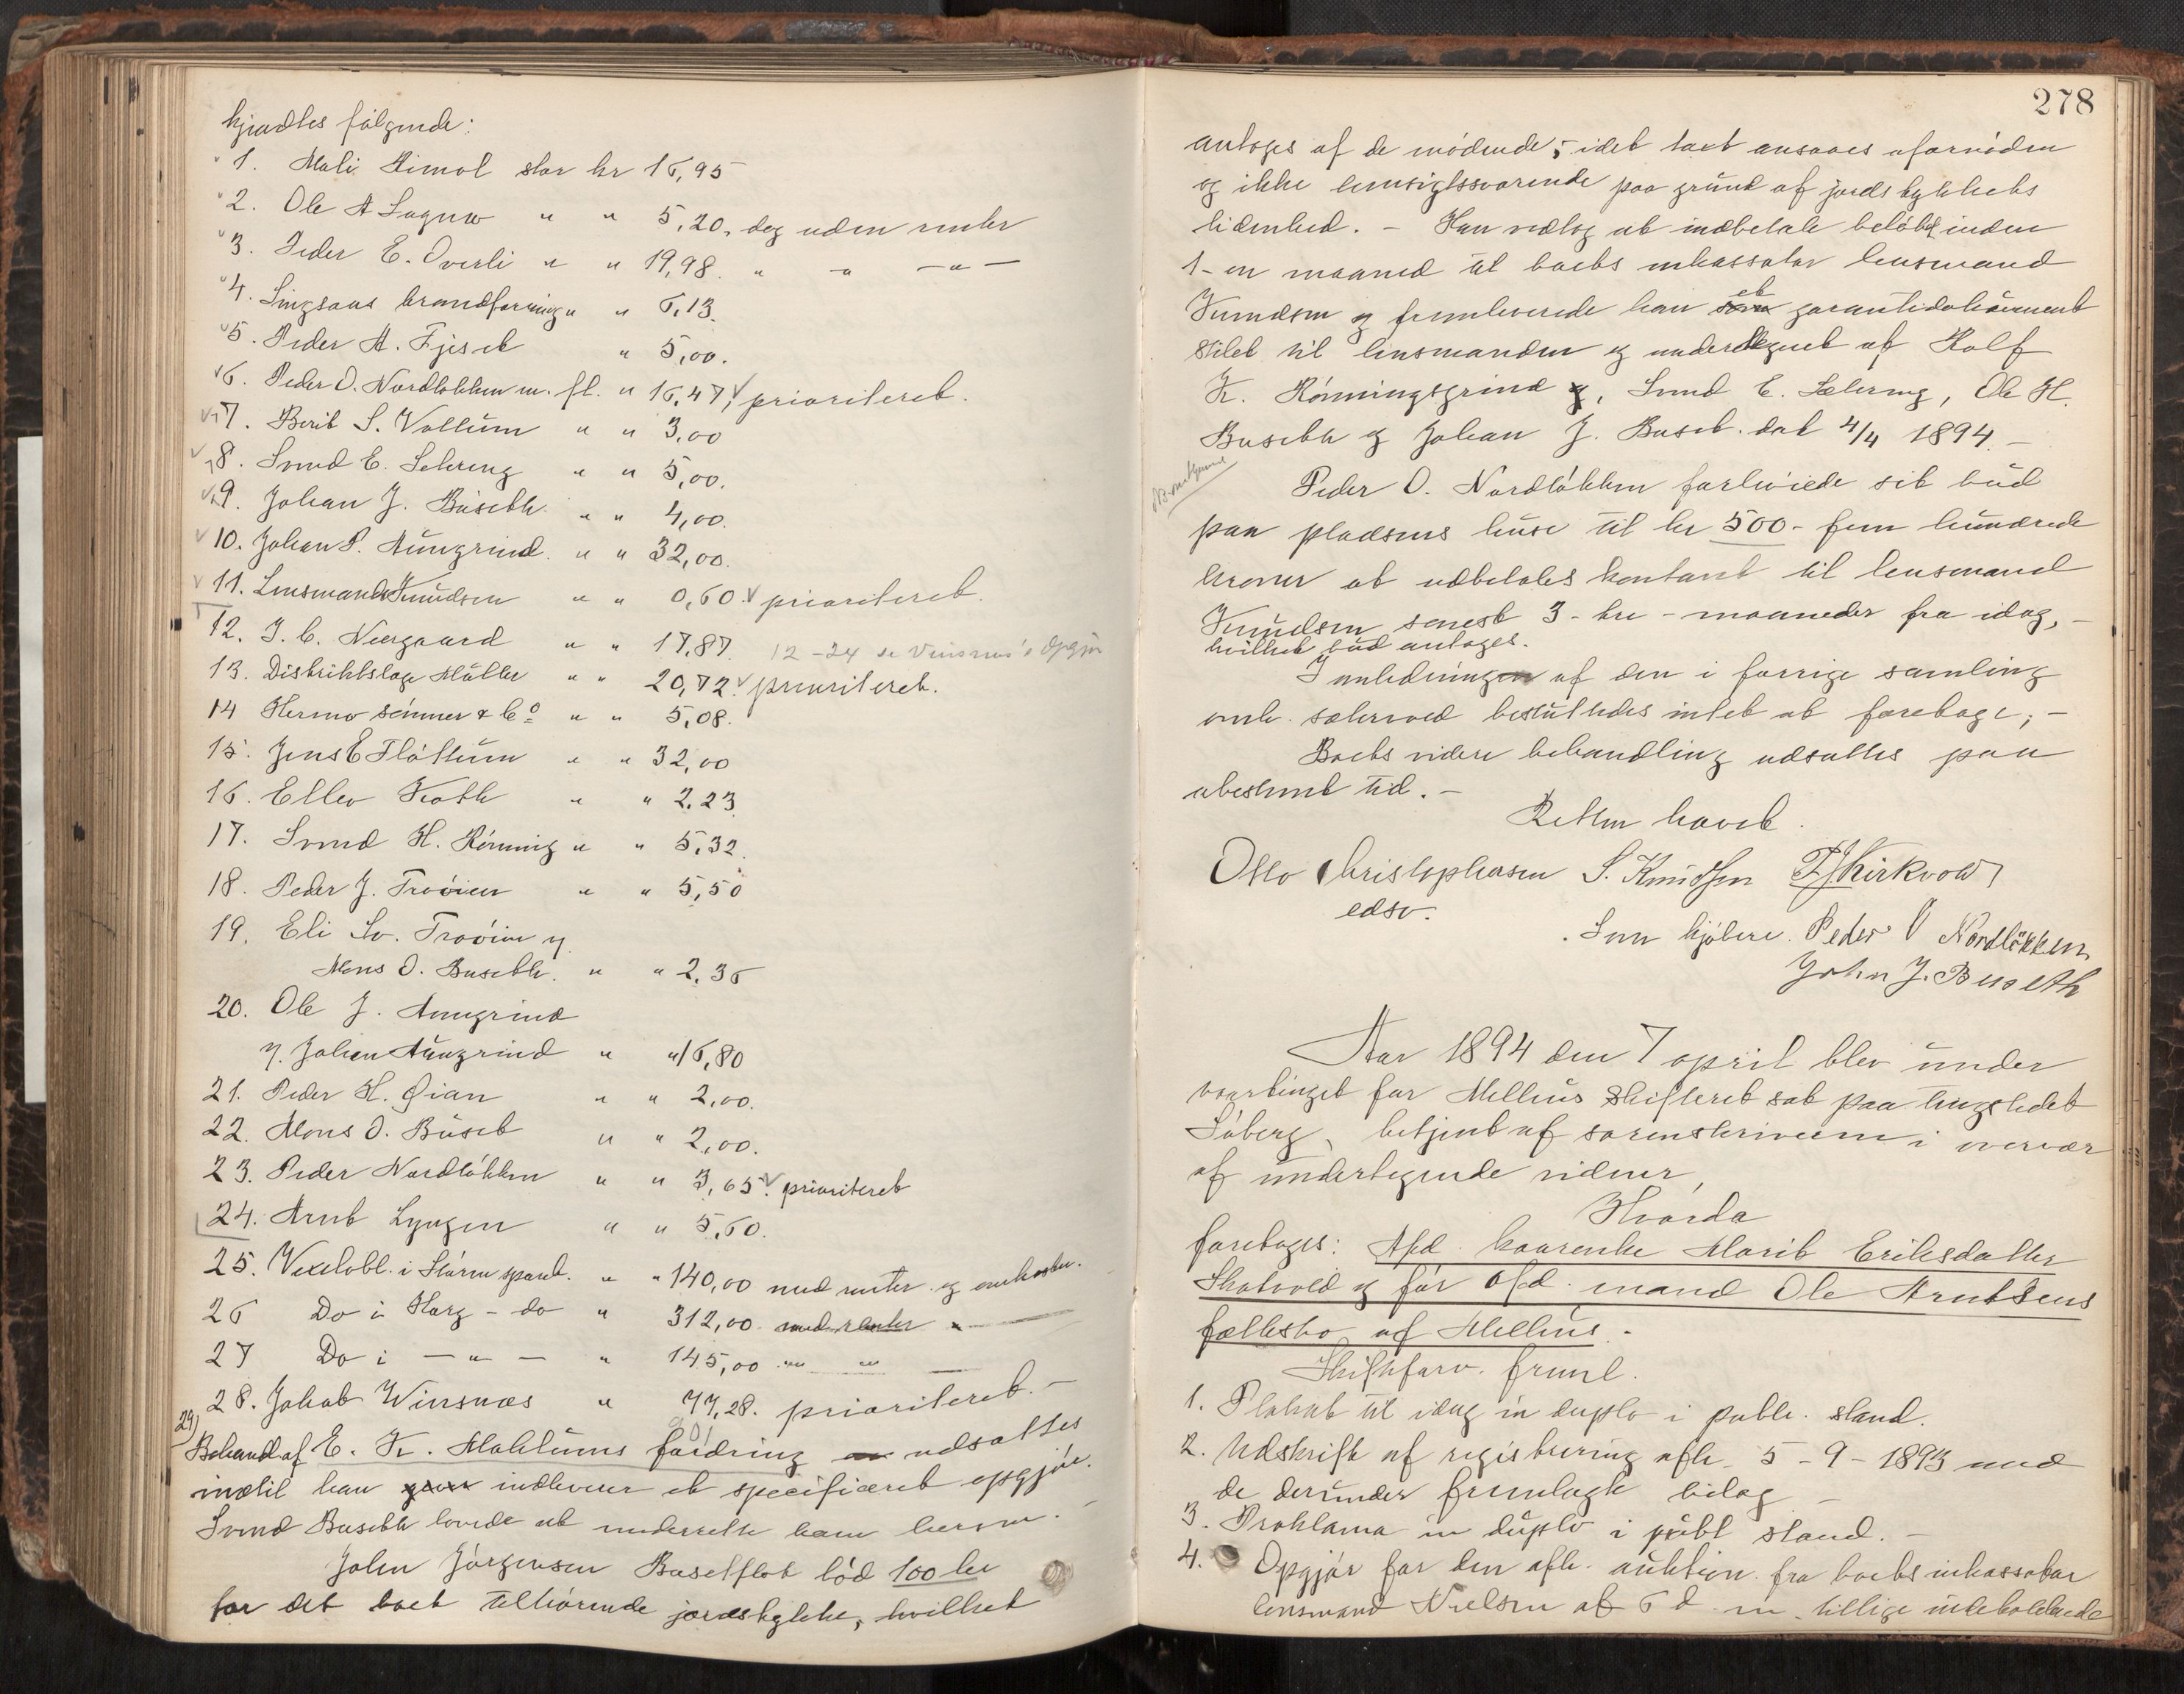 kjendtes følgende:
1. Mali Aimol stor kr 16,95
2. Ole A Sagmo " " 5,20, dog uden renter
3. Peder E. Overli " " 19,98 " " — " —
4. Singsaas brandforening " " 6,13.
5. Peder A. Fjeset " 5,00.
6. Peder O. Nordløkken m. fl. " 16,47, prioriteret.
7. Berit S. Vollum " " 3,00
8. Svend E. Sehring " " 5,00.
9. Johan J. Buseth " " 4,00.
10. Johan P. Aungrind " " 32,00.
11. Lensmand Knudsen " " 0,60. prioriteret.
12. J. C. Neergaard " " 17,87. 12-24 se Vinsnes's Opgjør
13. Distriktslæge Müller " " 20,72. prioriteret.
14 Hermo sønner & Co " " 5,08.
15. Jens E Fløttum " " 32,00
16. Ellev Kroth " " 2,23.
17. Svend H. Rønning " " 5,32.
18. Peder J. Trøøien " " 5,50
19. Eli Sv. Trøøien og
Mons O. Buseth. " " 2,36
20. Ole J. Aungrind
og Johan Aungrind " " 16,80
21. Peder H. Øian " " 2,00.
22. Mons O. Buset " " 2,00.
23. Peder Nordløkken " " 3,65. prioriteret
24. Arnt Lyngen " " 5,60.
25. Vexelobl. i Støren spareb. " " 140,00 med renter og omkostn.
26 Do i Horg - do " 312,00 med renter " —
27 Do i — " — " 145,00 " " —
28. Jakob Winsnæs " 77,28. prioriteret. —
29) Behandl. af E. Kr. Moktums fordring udsattes
indtil han giver indleverer et specificeret opgjør.
Svend Buseth lovede at underrette ham herom. —
John Jørgensen Busetflot bød 100 kr
for det boet tilhørende jordstykke, hvilket
278
antoges af de mødende; idet taxt ansaaes ufornøden
og ikke hensigtssvarende paa grund af jordstykkets
lidenhed. — Han vedtog at indbetale beløbet inden
1 - en maaned til boets inkassator lensmand
Knudsen og fremleverede han som et garantidokument
stilet til lensmanden og undertegnet af Rolf
K. Rønningsgrind og, Svend E. Sælering, Ole H.
Buseth og Johan J. Buset. dat 4/4 1894. —
Peder O. Nordløkken forhøiede sit bud
paa pladsens huse til kr 500 - fem hundrede
kroner at udbetales kontant til lensmand
Knudsen senest 3 - tre - maaneder fra idag, —
hvilket bud antages.
I anledningen af den i forrige samling
omh. søksmaal besluttedes intet at foretage; —
Boets videre behandling udsattes paa
ubestemt tid. —
Retten hævet.
Otto Christophersen S. Knudsen P. J. Kirkvold
edsv.
Som kjøbere Peder O Nordløkken
John J. Buseth
Aar 1894 den 7 april blev under
vaartinget for Melhus skifteret sat paa tingstedet
Søberg, betjent af sorenskriveren i overvær
af undertegnede vidner,
Hvorda
foretoges: Afd. kaarenke Marit Eriksdatter
Skotvold og før afd. mand Ole Arntsens
fællesbo af Melhus. —
Skifteforv. freml.
1. Plakat til idag in duplo i publ. stand.
2. Udskrift af registrering afh. 5 - 9 - 1893 med
de derunder fremlagte bilag —
3. Proklama in duplo i publ stand. —
4. Opgjør for den afh. auktion fra boets inkassator
lensmand Nielsen af 6 d. m. tillige indeholdende